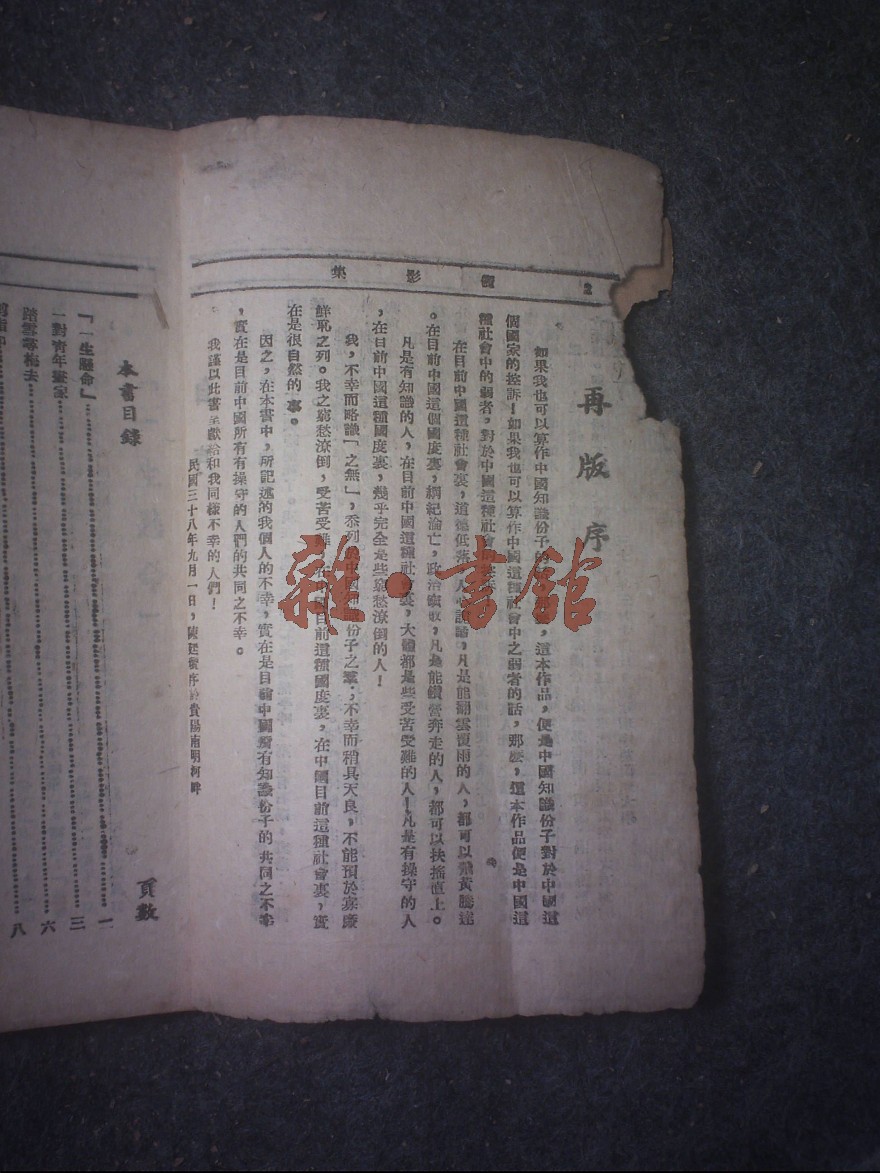 集 影 2
再版序
如果我也可以算作中國知識份子的 ,這本作品,便是中國知識份子對於中國這
個國家的控訴!如果我也可以算作中國這種社會中之弱者的話,那麽,這本作品便是中國這
種社會中的弱者,對於中國這種社會的
在目前中國這種社會裏,道德低落,人心 ,凡是能翻雲覆雨的人,都可以飛黃騰達
。在目前中國這個國度裏,綱紀淪亡,政治 ,凡是能鑽營奔走的人,都可以扶搖直上。
凡是有知識的人,在目前中國這種社會裏,大體都是些受苦受難的人!凡是有操守的人
,在目前中國這種國度裏,幾乎完全是些窮愁潦倒的人!
我,不幸而略識「之無」,忝列於中國知識份子之羣;不幸而稍具天良,不能預於寡廉
鮮恥之列。我之窮愁潦倒,受苦受難,在中國目前這種國度裏,在中國目前這種社會裏,實
在是很自然的事。
因之,在本書中,所記述的我個人的不幸,實在是目前中國所有知識份子的共同之不幸
,實在是目前中國所有有操守的人們的共同之不幸。
我謹以此書呈獻給和我同樣不幸的人們!
民國三十八年九月一日,陳 序於貴陽南明河畔
本書目錄 頁數
「一生懸命」 一
一對青年畫家 三
踏雪尋梅去 六
八
雜·書館